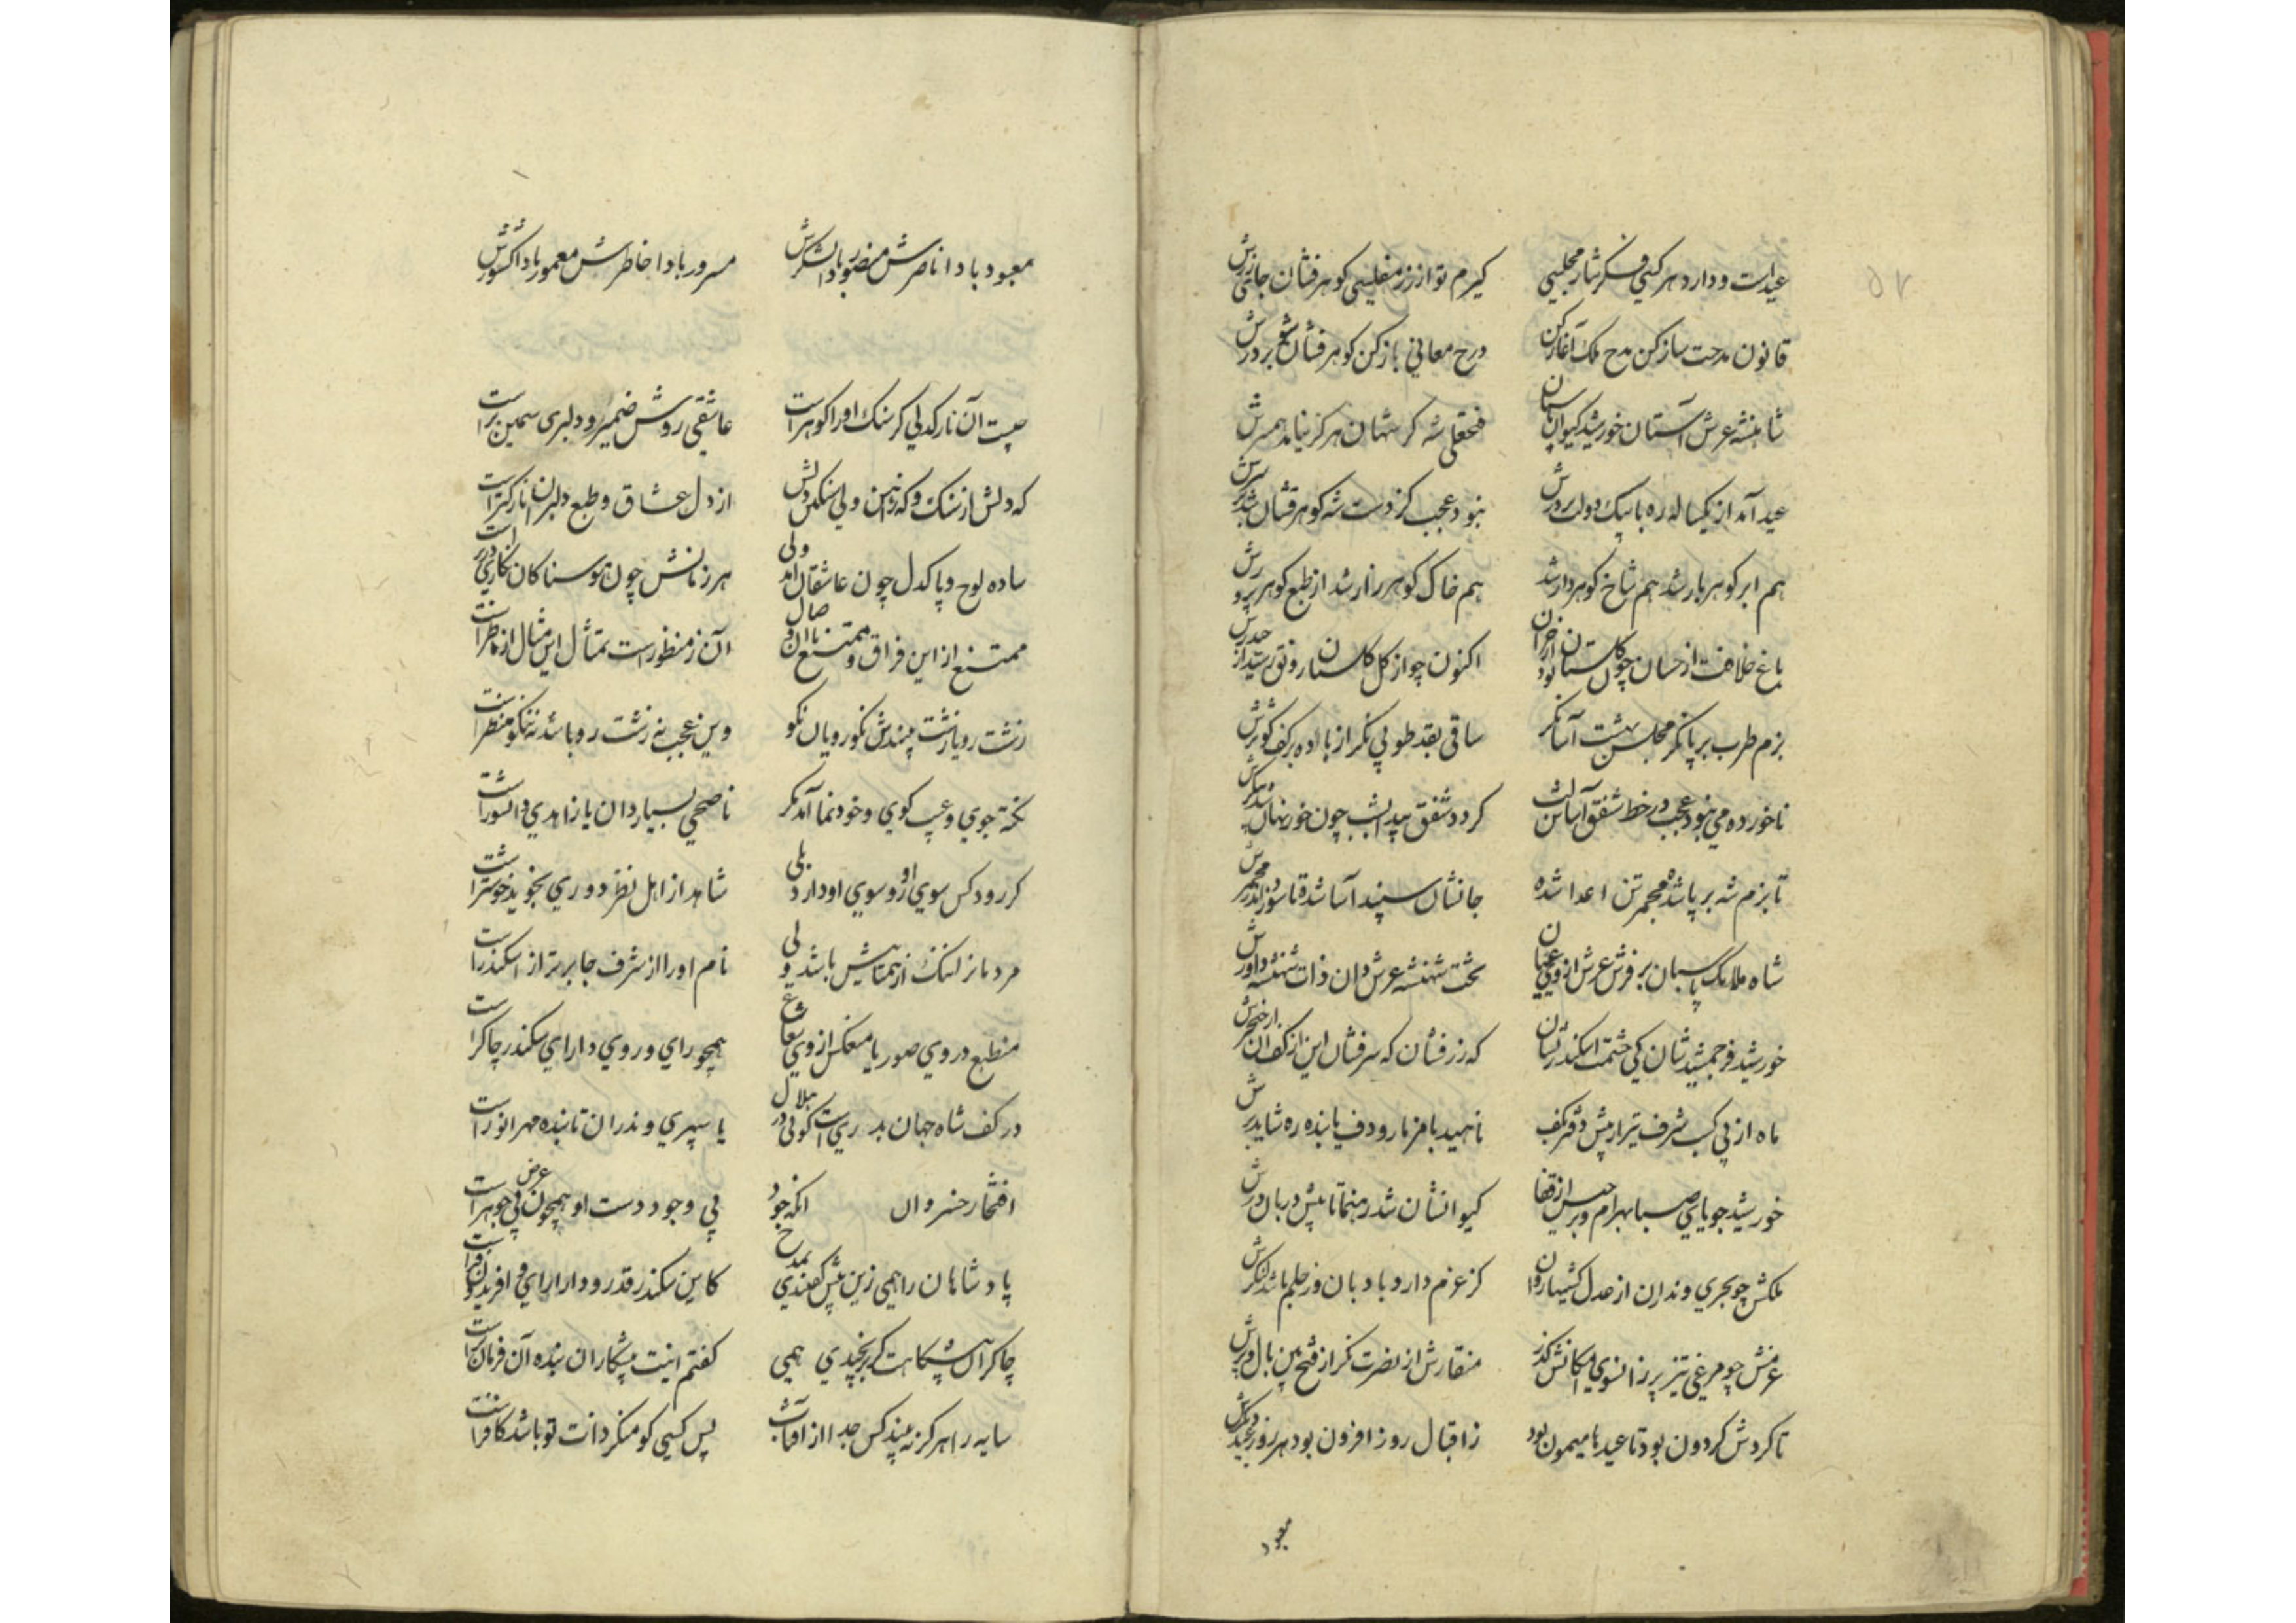 ۵۲
عید است و دارد هر کسی فکر نثار مجلسی کیرم تو از زر مفلسی کوهر فشان جای زرش
قانون مدحت ساز کن مدح ملک آغاز کن درج معانی باز کن کوهر فشان شو بر درش
شاهنشه عرش آستان خورشید کیوان پاسبان فتحعلی شه کز شهان هرکز نیامد همسرش
عید آمد از یکساله ره با پیک دولت بر درش نبود عجب کز دست شه کوهر فشان شد بر سرش
هم ابر کوهر بار شد هم شاخ کوهردار شد هم خاک کوهر زار شد از طبع کوهر پرورش
باغ خلافت از خسان چون کلستان بود از خزان اکنون چو از کل کلستان رونق رسید از
بزم طرب بر پا نکر مجلس بهشت آسا نکر ساقی بقد طوبی نکر از باده بر کف کوثرش
ناخورده می نبود عجب در خط شفق آسانش لب کردد شفق پیدا بشب چون خور نهان شد پیکرش
تا بزم شه بر پا شده مجمر تن اعدا شده جانشان سپند آسا شده تا سوزد اندر مجمرش
شاه ملایک پاسبان بر فرش عرش از وی عیان تخت شهنشه عرش دان ذات شهنشه داورش
خورشید فر جمشید شان کی حشمت اسکندر نشان که زر فشان که سر فشان این از کف آن از خنجرش
ماه از پی کسب شرف تیر از پیش دفتر بکف ناهید با مزمار و دف پاینده ره شاید برش
خورشید جویای صبا بهرام و برجیس از قفا کیوانشان شد رهنما تا پیش دربان درش
ملکش چو بحری وندران از عدل کشتیها روان کز عزم دارد بادبان وز حلم باشد لنکرش
عزمش چو مرغی تیز پر زانسوی امکانش کذر منقارش از نصرت نکر از فتح بین بال و پرش
تا کردش کردون بود تا عید ها میمون بود ز اقبال روز افزون بود هر روز عید دیکرش
معبود
معبود بادا ناصرش منصور بادا لشکرش مسرور بادا خاطرش معمور بادا کشورش
چیست آن نارکدلی کز سنک او را کوهر است عاشقی روشن ضمیر و دلبری سیمین بر است
که دلش از سنک و که ز آهن ولی سنکین دلش از دل عشاق و طبع دلبران نازکتر است
ساده لوح و پاکدل چون عاشقان آمد ولی هر زمانش چون هوسناکان نکاری در بر است
ممتنع از این فراق و ممتنع با آن وصال آن ز منظور است تمثال این مثال از ناظر است
زشت رویا زشت بیندش نکورویان نکو وین عجب نه زشت رو باشد نه نیکو منظر است
نکته جوی و عیب کوی و خودنما آمد مکر ناصحی بسیار دان یا زاهدی دانشور است
کر رود کس سوی او رو سوی او دارد بلی شاهد از اهل نظر دوری نجوید خوشتر است
مرد مانر لنک از همتایش باشد ولی نام او را از شرف جا برتر از اسکندر است
منطبع در وی صور یا منعکس از وی شعاع همچو رای و روی دارای سکندر چاکر است
در کف شاه جهان بدریست کوئی در هلال یا سپهری وندران تابنده مهر انور است
افتخار خسروان انکه جود بی وجود دست او همچون عرض بی جوهر است
پادشاهان را همی زین پیش کفتندی بمدح کاین سکندر قدر و دارا رای و افریدون فر است
چاکران پیشکاهت کر برنجیدی همی کفتم اینت پیشکاران بنده آن فرمانبر است
سایه را هرکز نه بیند کس جدا از آفتاب پس کسی کو منکر ذات تو باشد کافر است